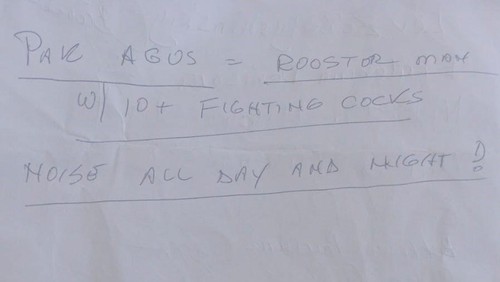 PAK AGUS = ROOSTOR MAN
W/ 10+ FIGHTING COCKS
NOISE ALL DAY AND NIGHT!